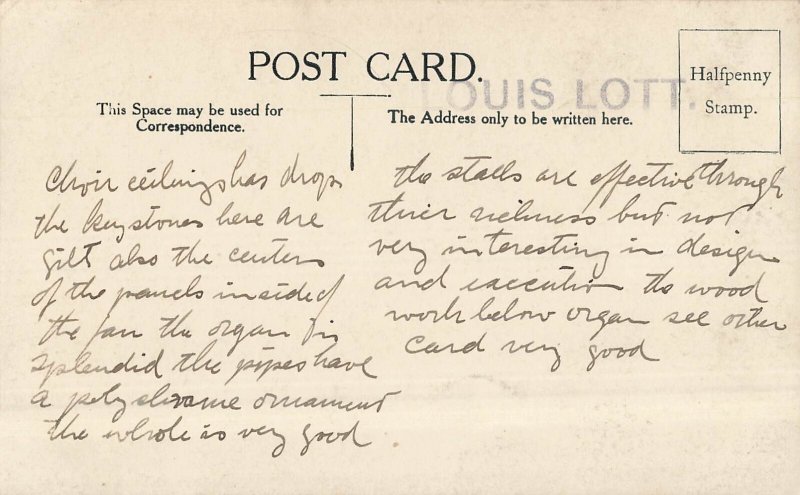 POST CARD.
OUIS LOTT.
Halfpenny
Stamp.
This Space may be used for
Correspondence.
The Address only to be written here.
Choir ceilings has drops
the keystones here are
gilt also the centers
of the panels inside of
the fan the organ is
splendid the pipes have
a polychrome ornament
the whole is very good
the stalls are effective through
their richness but not
very interesting in design
and execution the wood
work below organ see other
card very good